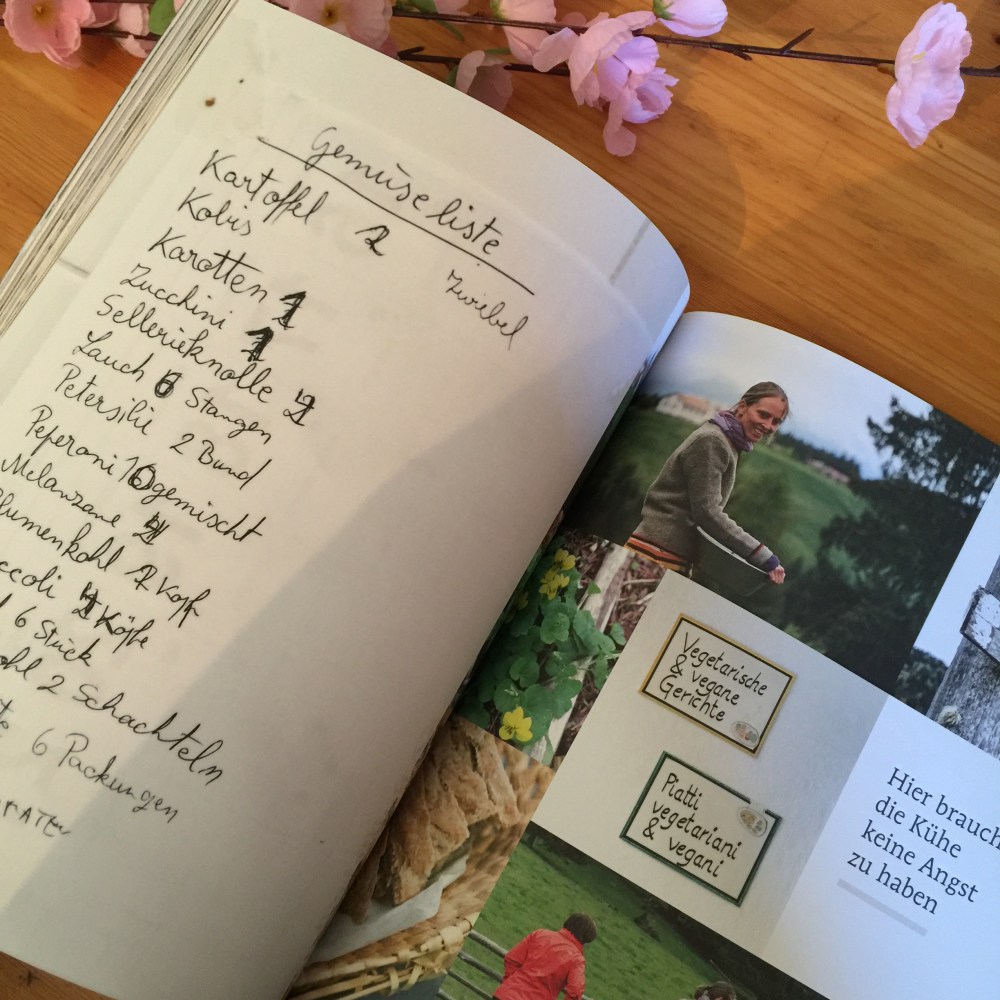 Gemüseliste
Kartoffel 2
Zwiebel
Kobis
Karotten 1
Zucchini 1
Sellerieknolle 2
Lauch 6 Stangen
Petersilie 2 Bund
Peperoni 10 gemischt
Melanzane
lumenkohl 1 Kopf
ccoli Köpfe
6 Stück
ohl 2 Schachteln
6 Packungen
Vegetarische
& vegane
Gerichte
Piatti
vegetariani
& vegani
Hier brauch
die Kühe
keine Angst
zu haben